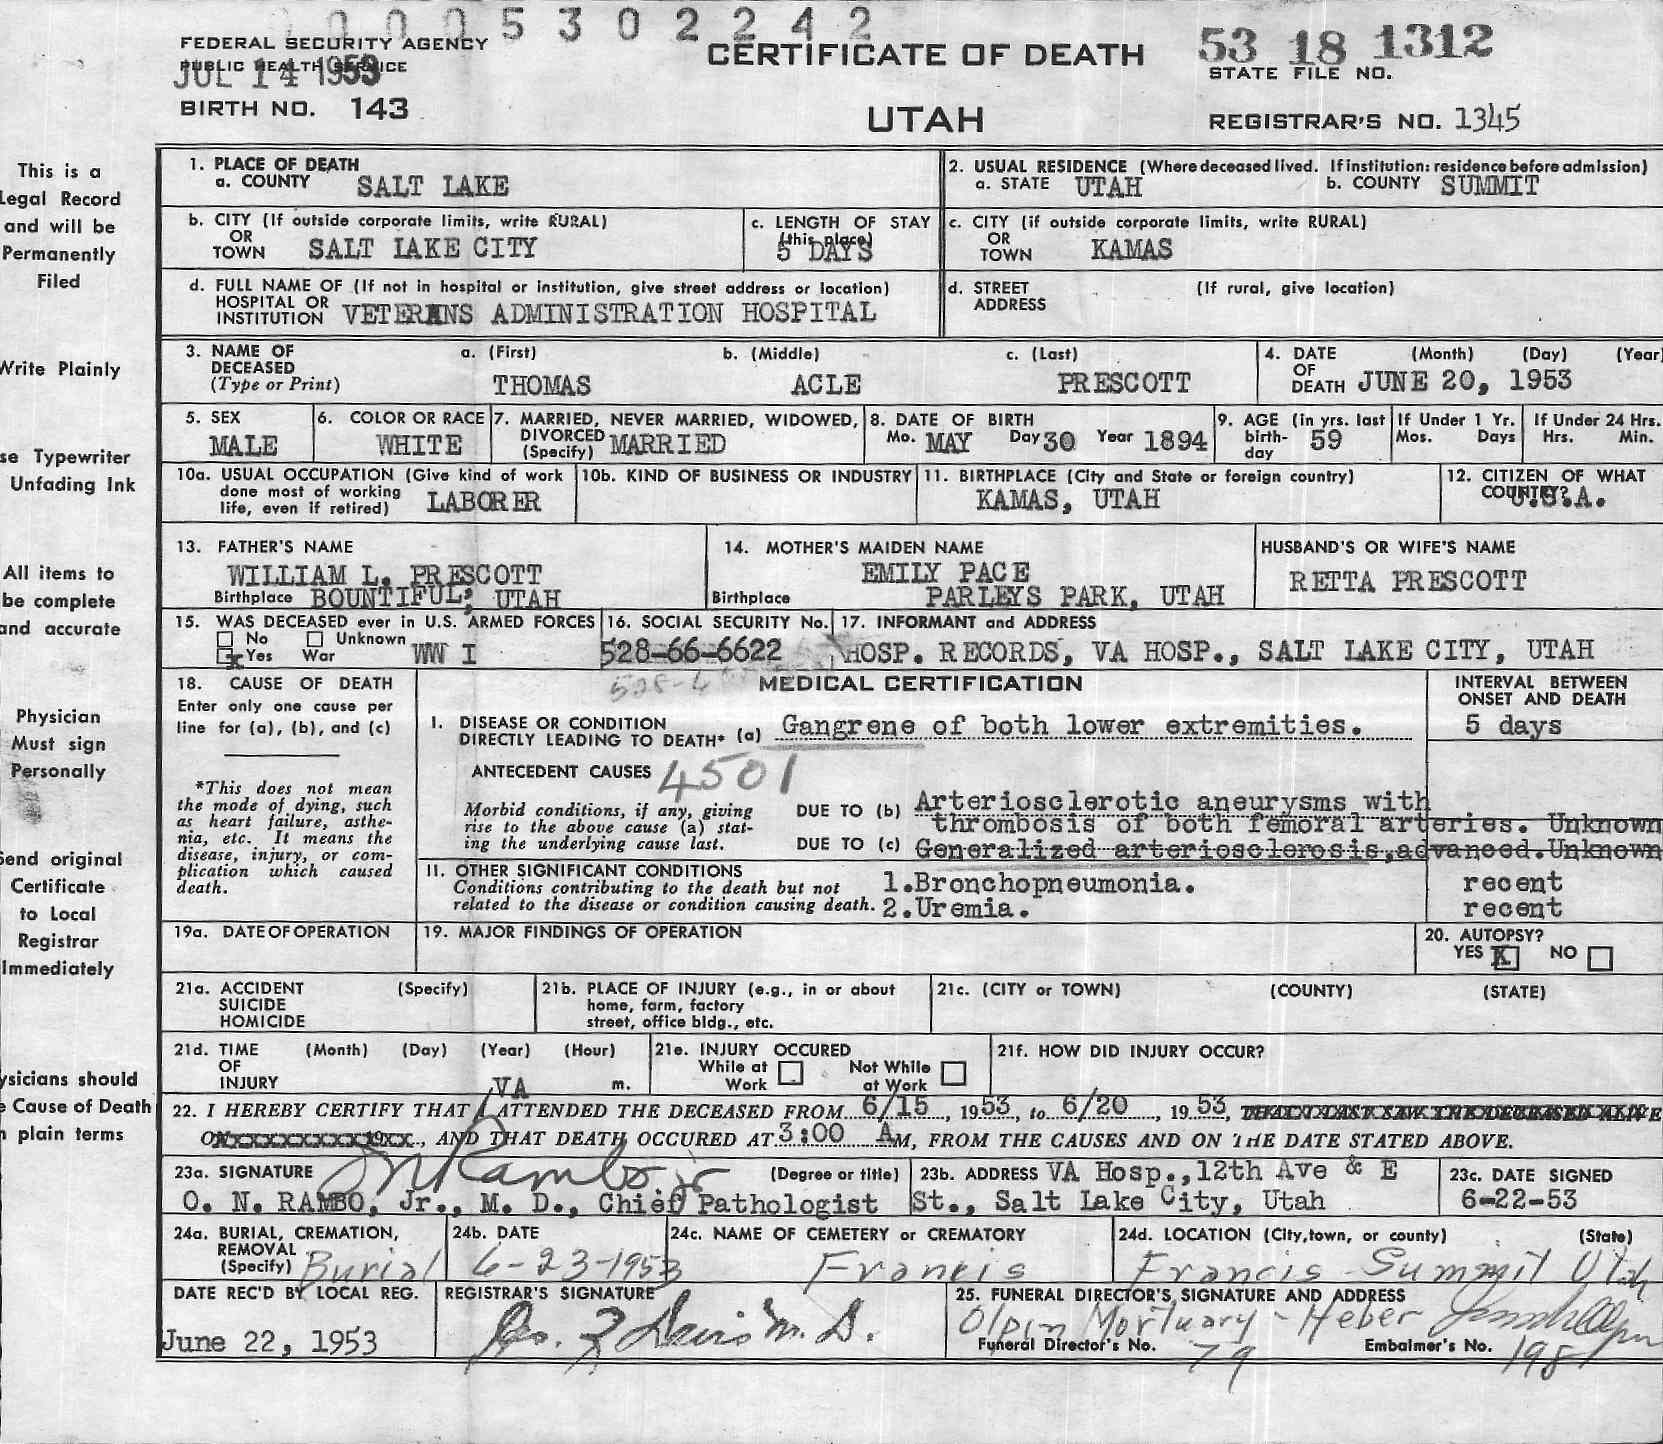 0 0 0 5 3 0 2 2 4 2
FEDERAL SECURITY AGENCY
PUBLIC HEALTH SERVICE
JUL 14 1953
BIRTH NO. 143
CERTIFICATE OF DEATH
UTAH
53 18 1312
STATE FILE NO.
REGISTRAR'S NO. 1345
This is a
Legal Record
and will be
Permanently
Filed
Write Plainly
se Typewriter
Unfading Ink
All items to
be complete
and accurate
Physician
Must sign
Personally
Send original
Certificate
to Local
Registrar
Immediately
ysicians should
e Cause of Death
n plain terms
1. PLACE OF DEATH
a. COUNTY SALT LAKE
2. USUAL RESIDENCE (Where deceased lived. If institution: residence before admission)
a. STATE UTAH b. COUNTY SUMMIT
b. CITY (If outside corporate limits, write RURAL)
OR
TOWN SALT LAKE CITY
c. LENGTH OF STAY
(this place)
5 DAYS
c. CITY (if outside corporate limits, write RURAL)
OR
TOWN KAMAS
d. FULL NAME OF (If not in hospital or institution, give street address or location)
HOSPITAL OR
INSTITUTION VETERANS ADMINISTRATION HOSPITAL
d. STREET (If rural, give location)
ADDRESS
3. NAME OF a. (First) b. (Middle) c. (Last)
DECEASED
(Type or Print) THOMAS ACLE PRESCOTT
4. DATE (Month) (Day) (Year)
OF
DEATH JUNE 20, 1953
5. SEX
MALE
6. COLOR OR RACE
WHITE
7. MARRIED, NEVER MARRIED, WIDOWED,
DIVORCED
(Specify) MARRIED
8. DATE OF BIRTH
Mo. MAY Day 30 Year 1894
9. AGE (in yrs. last
birth-
day 59
If Under 1 Yr.
Mos. Days
If Under 24 Hrs.
Hrs. Min.
10a. USUAL OCCUPATION (Give kind of work
done most of working
life, even if retired) LABORER
10b. KIND OF BUSINESS OR INDUSTRY
11. BIRTHPLACE (City and State or foreign country)
KAMAS, UTAH
12. CITIZEN OF WHAT
COUNTRY?
U.S.A.
13. FATHER'S NAME
WILLIAM L. PRESCOTT
Birthplace BOUNTIFUL, UTAH
14. MOTHER'S MAIDEN NAME
EMILY PACE
Birthplace PARLEYS PARK, UTAH
HUSBAND'S OR WIFE'S NAME
RETTA PRESCOTT
15. WAS DECEASED ever in U.S. ARMED FORCES
No Unknown
x Yes War WW I
16. SOCIAL SECURITY No.
528-66-6622
17. INFORMANT and ADDRESS
HOSP. RECORDS, VA HOSP., SALT LAKE CITY, UTAH
18. CAUSE OF DEATH
Enter only one cause per
line for (a), (b), and (c)
*This does not mean
the mode of dying, such
as heart failure, asthe-
nia, etc. It means the
disease, injury, or com-
plication which caused
death.
MEDICAL CERTIFICATION
INTERVAL BETWEEN
ONSET AND DEATH
I. DISEASE OR CONDITION
DIRECTLY LEADING TO DEATH* (a) Gangrene of both lower extremities. 5 days
ANTECEDENT CAUSES 4501
Morbid conditions, if any, giving
rise to the above cause (a) stat-
ing the underlying cause last.
DUE TO (b) Arteriosclerotic aneurysms with
thrombosis of both femoral arteries. Unknown
DUE TO (c) Generalized arteriosclerosis,advanced. Unknown
II. OTHER SIGNIFICANT CONDITIONS
Conditions contributing to the death but not
related to the disease or condition causing death.
1. Bronchopneumonia. recent
2. Uremia. recent
19a. DATE OF OPERATION
19. MAJOR FINDINGS OF OPERATION
20. AUTOPSY?
YES X NO
21a. ACCIDENT (Specify)
SUICIDE
HOMICIDE
21b. PLACE OF INJURY (e.g., in or about
home, farm, factory
street, office bldg., etc.
21c. (CITY or TOWN) (COUNTY) (STATE)
21d. TIME (Month) (Day) (Year) (Hour)
OF
INJURY m.
21e. INJURY OCCURED
While at Work Not While at Work
21f. HOW DID INJURY OCCUR?
VA
22. I HEREBY CERTIFY THAT I ATTENDED THE DECEASED FROM 6/15, 1953, to 6/20, 1953, THAT I LAST SAW THE DECEASED ALIVE
ON 19, AND THAT DEATH OCCURED AT 3:00 AM, FROM THE CAUSES AND ON THE DATE STATED ABOVE.
23a. SIGNATURE ON Rambo Jr (Degree or title)
O. N. RAMBO, Jr., M. D., Chief Pathologist
23b. ADDRESS VA Hosp.,12th Ave & E
St., Salt Lake City, Utah
23c. DATE SIGNED
6-22-53
24a. BURIAL, CREMATION,
REMOVAL
(Specify) Burial
24b. DATE
6-23-1953
24c. NAME OF CEMETERY or CREMATORY
Francis
24d. LOCATION (City,town, or county) (State)
Francis Summit Utah
DATE REC'D BY LOCAL REG.
June 22, 1953
REGISTRAR'S SIGNATURE
Davis M.D.
25. FUNERAL DIRECTOR'S SIGNATURE AND ADDRESS
Olpin Mortuary - Heber
Funeral Director's No. 79
Embalmer's No. 198